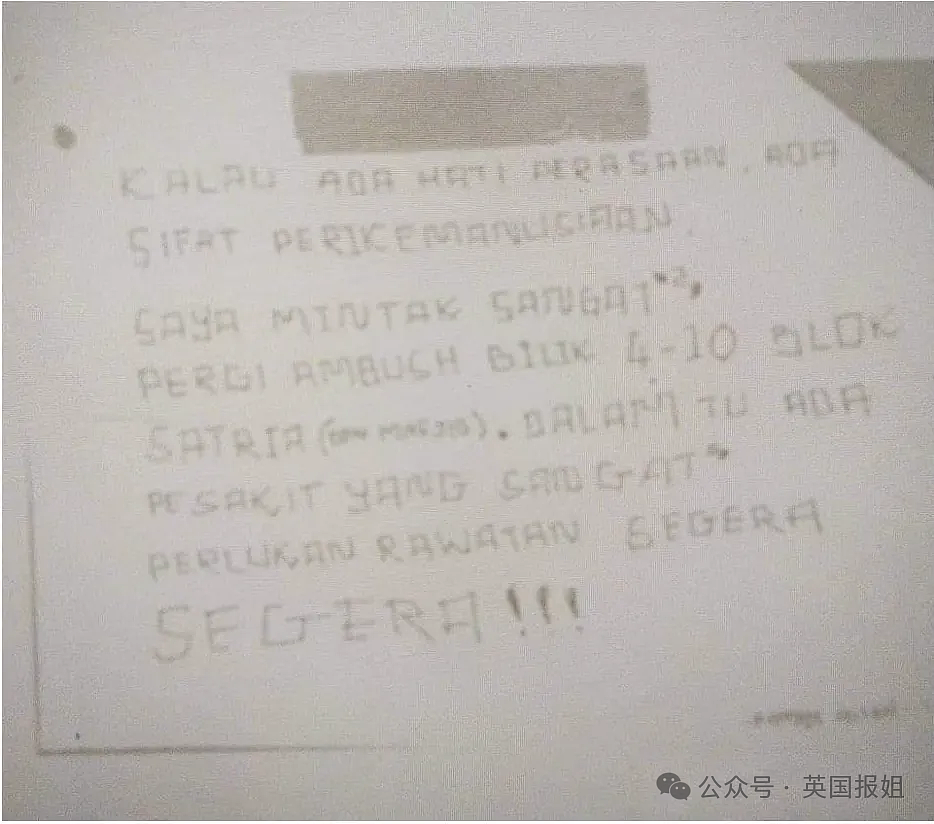 KALAU ADA HATI PERASAAN, ADA
SIFAT PERIKEMANUSIAAN.
SAYA MINTAK SANGAT"2,
PERGI AMBUSH BILIK 4-10 BLOK
SATRIA. DALAM TU ADA
PESAKIT YANG SANGAT"
PERLUKAN RAWATAN SEGERA
SEGERA!!!
公众号 · 英国报姐